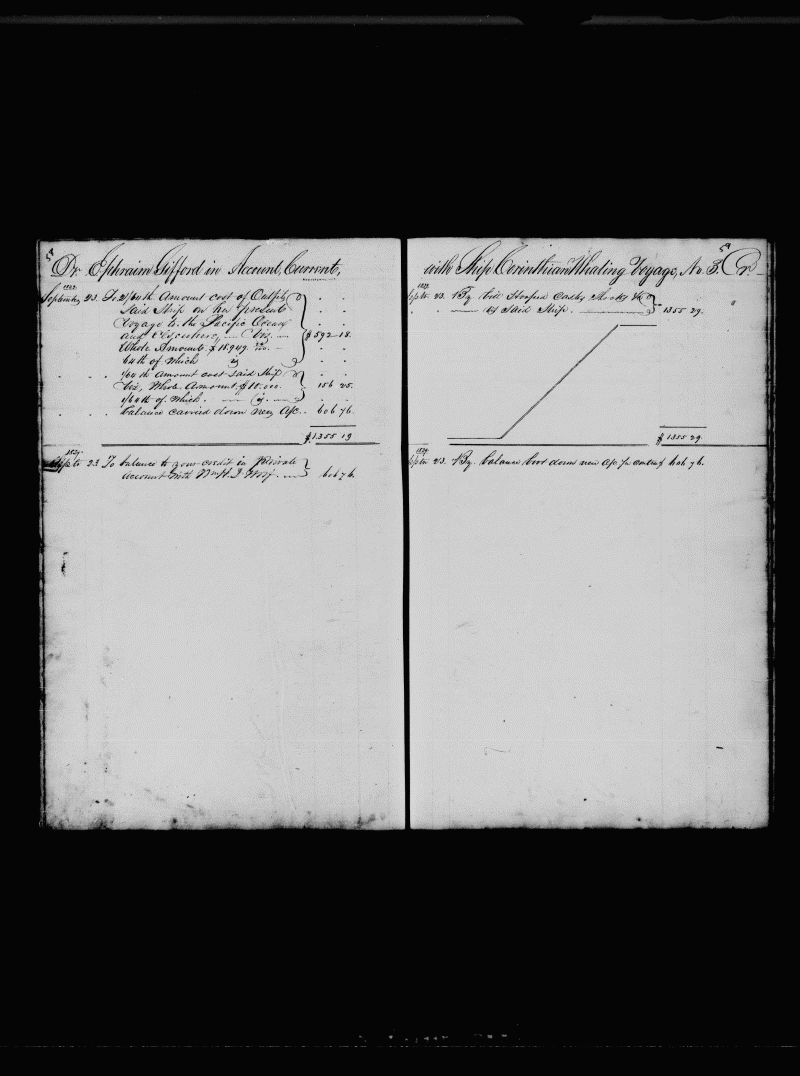 Dr. Ephraim Gifford in Account, Current,
September 23. To 2/64th Amount cost of Outfits
Said Ship on her present
Voyage to the Pacific Ocean
and Elsewhere, Viz.
$592 18.
Whole Amount $18.949.
64th of which is
1/64th Amount cost said Ship
Viz, Whole Amount, $10.000.
156 25.
1/64th of which is
balance carried down new A/c. 606 76.
$1355 19
Septr 23 To balance to your credit in Private
Account with Wm H. 606 76.
58
with Ship Corinthian Whaling Voyage, No. 3. Cr.
Septr 23. By bill Hoop'd Casks Shooks &c
by Said Ship. 1355 29.
$1355 29.
Septr 23. By balance brot down new A/c 606 76.